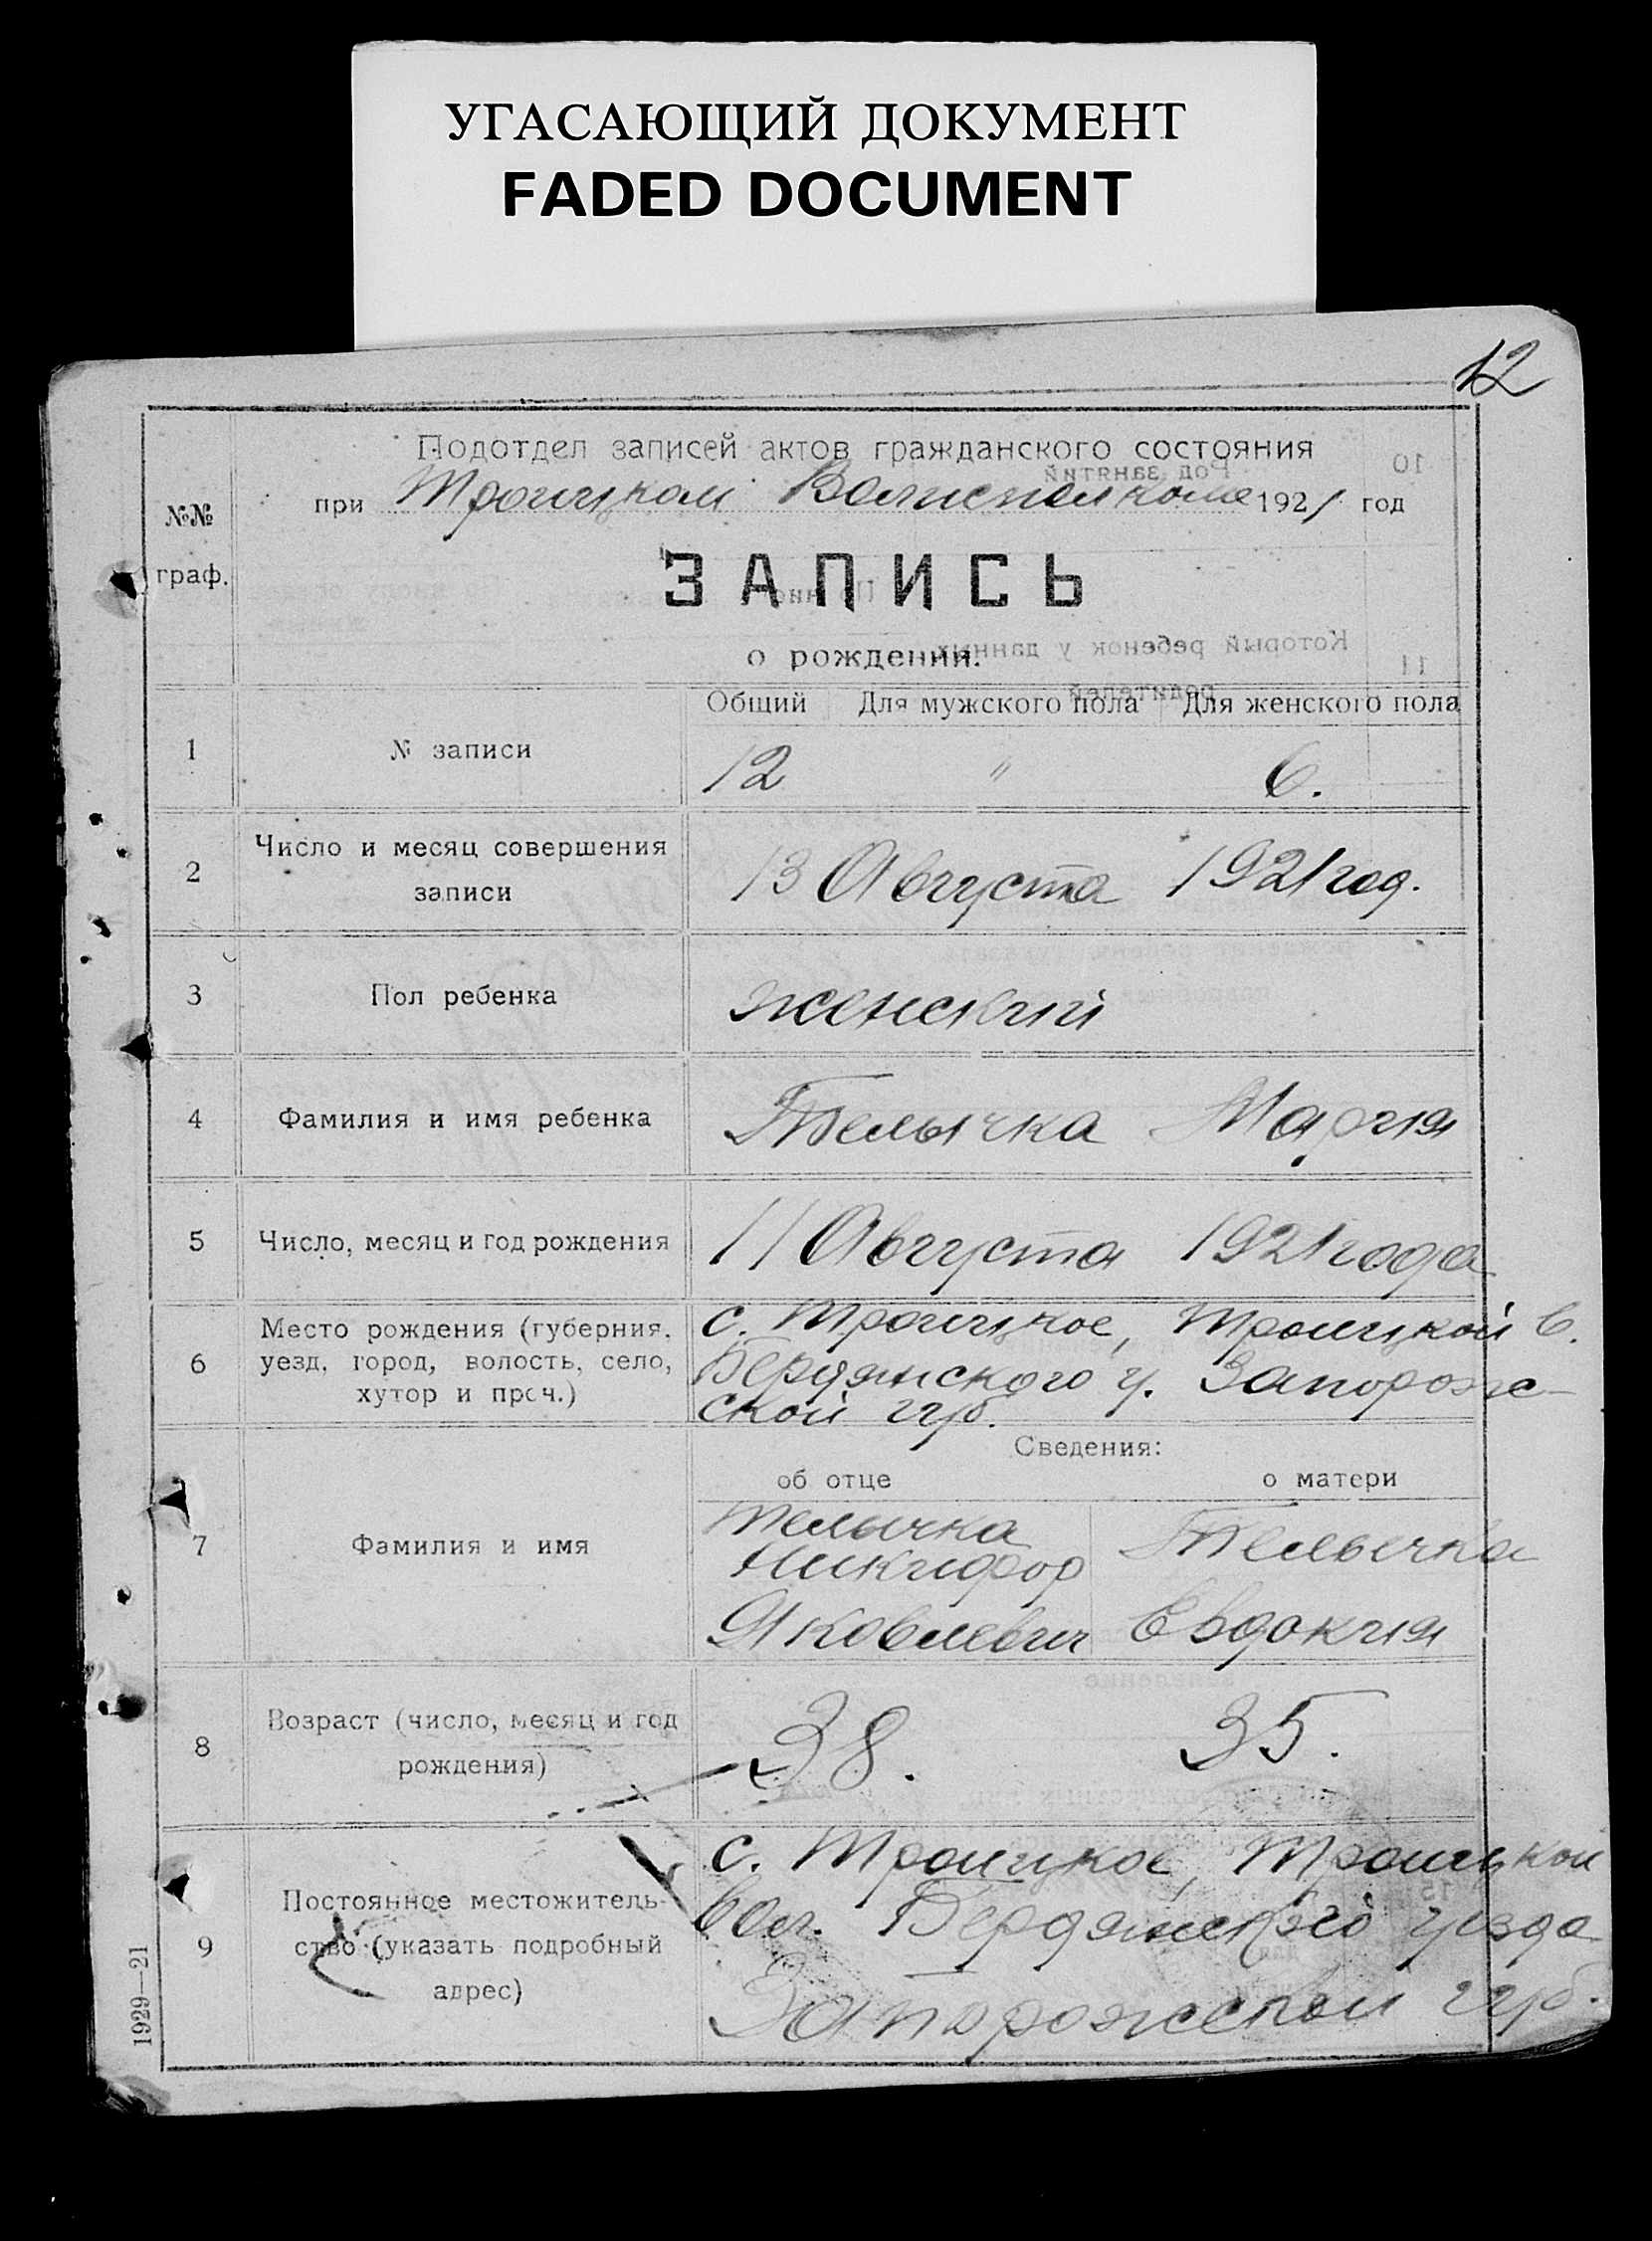 УГАСАЮЩИЙ ДОКУМЕНТ
FADED DOCUMENT
12
Подотдел записей актов гражданского состояния
при Троицком Волисполкоме 1921 год
№№
граф.
ЗАПИСЬ
о рождении.
Общий Для мужского пола Для женского пола
1 № записи 12 " 6.
2 Число и месяц совершения
записи
13 Августа 1921 год.
3 Пол ребенка женский
4 Фамилия и имя ребенка Телычка Мария
5 Число, месяц и год рождения 11 Августа 1921 года
6 Место рождения (губерния,
уезд, город, волость, село,
хутор и проч.)
с. Троицкое, Троицкой в.
Бердянского у. Запорож-
ской губ.
Сведения:
об отце о матери
7 Фамилия и имя
Телычка
Никифор
Яковлевич
Телычка
Евдокия
8 Возраст (число, месяц и год
рождения)
38. 35.
9 Постоянное местожитель-
ство (указать подробный
адрес)
с. Троицкое, Троицкой
вол. Бердянского уезда
Запорожской губ.
1929—21
10
Род занятий
11
Который ребенок у данных
родителей
15